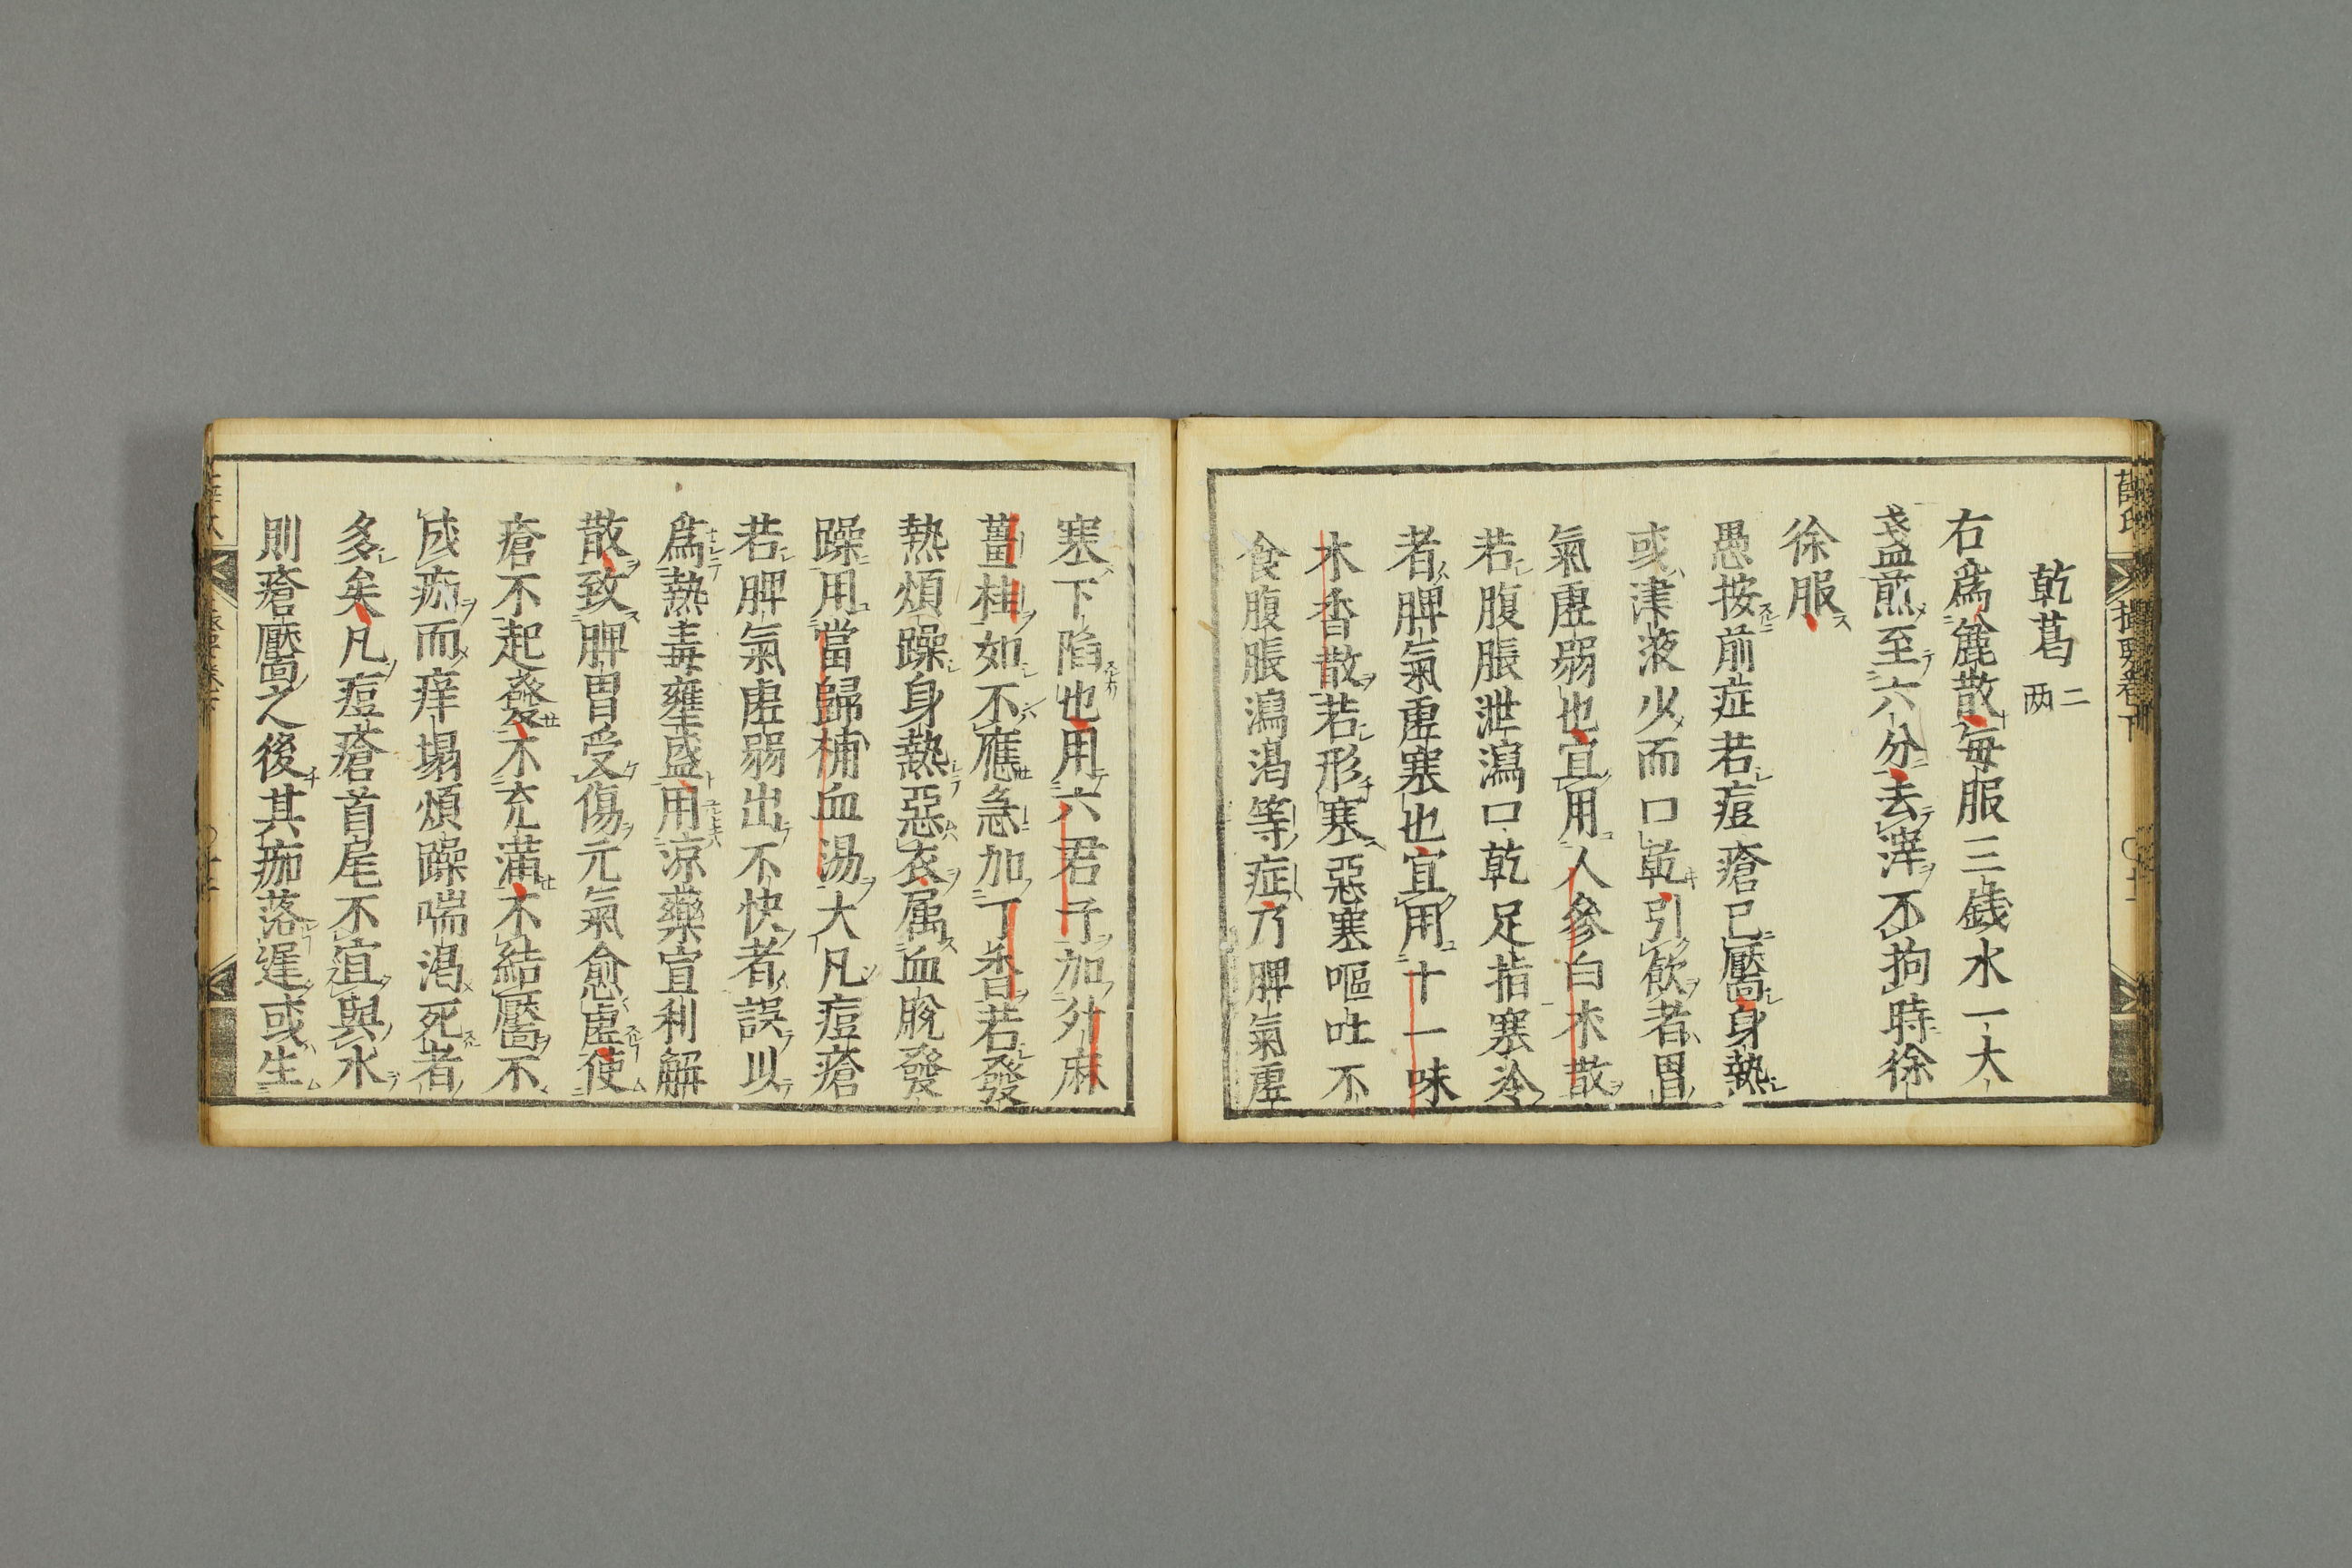 乾葛 二両
右為麄散毎服三銭水一大
盞煎至六分去滓不拘時徐
徐服
愚按前症若痘瘡已靨身熱
或津液少而口乾引飲者胃
氣虚弱也宜用人參白朮散
若腹脹泄瀉口乾足指寒冷
者脾氣虚寒也宜用十一味
木香散若形寒惡寒嘔吐不
食腹脹瀉渇等症乃脾氣虚
寒下陷也用六君子加升麻
薑桂如不應急加丁香若發
熱煩躁身熱惡衣属血脱發
躁用當歸補血湯大凡痘瘡
若脾氣虚弱出不快者誤以
為熱毒壅盛用凉藥宣利解
散致脾胃受傷元氣愈虚使
瘡不起發不充満不結靨不
成痂而痒塌煩躁喘渇死者
多矣凡痘瘡首尾不宜與水
則瘡靨之後其痂落遲或生